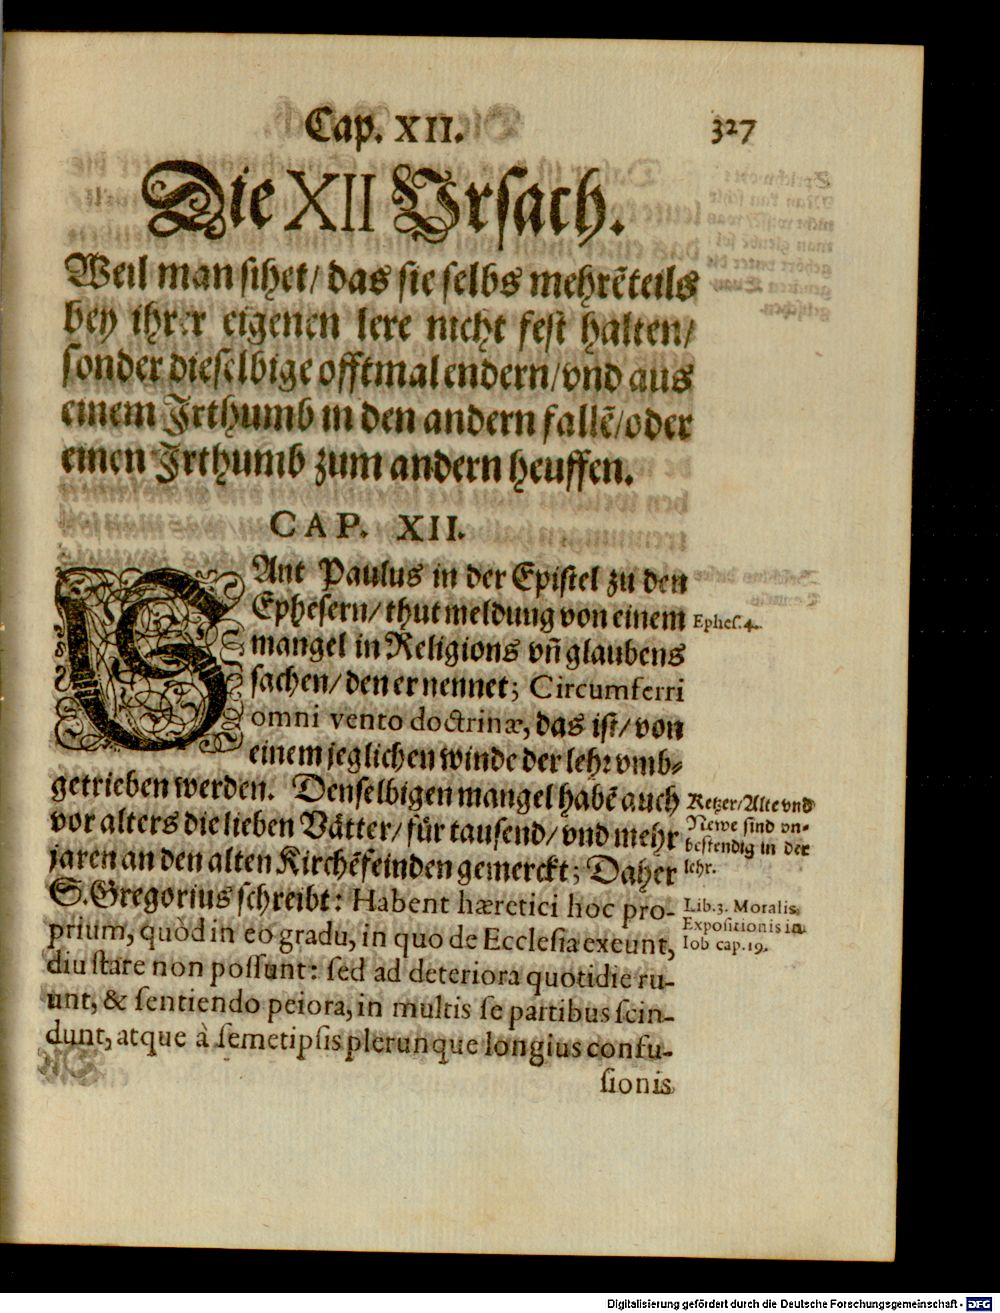 Cap. XII. 327
Die XII Vrsach.
Weil man sihet/ das sie selbs mehrẽteils
bey ihrer eigenen lere nicht fest halten/
sonder dieselbige offtmal endern/ vnd aus
einem Jrthumb in den andern fallẽ/ oder
einen Jrthumb zum andern heuffen.
CAP. XII.
SAnt Paulus in der Epistel zu den
Ephesern/ thut meldung von einem
Ephes. 4.
mangel in Religions vñ glaubens
sachen/ den er nennet; Circumferri
omni vento doctrinæ, das ist/ von
einem jeglichen winde der lehr vmb-
getrieben werden. Denselbigen mangel habẽ auch
vor alters die lieben Vätter/ für tausend/ vnd mehr
jaren an den alten Kirchẽfeinden gemerckt; Daher
Ketzer/ Alte vnd
Newe sind vn-
bestendig in der
lehr.
S. Gregorius schreibt: Habent hæretici hoc pro-
prium, quòd in eo gradu, in quo de Ecclesia exeunt,
Lib. 3. Moralis
Expositionis in
Iob cap. 19.
diu stare non possunt: sed ad deteriora quotidie ru-
unt, & sentiendo peiora, in multis se partibus scin-
dunt, atque à semetipsis plerunque longius confu-
sionis
Digitalisierung gefördert durch die Deutsche Forschungsgemeinschaft - DFG